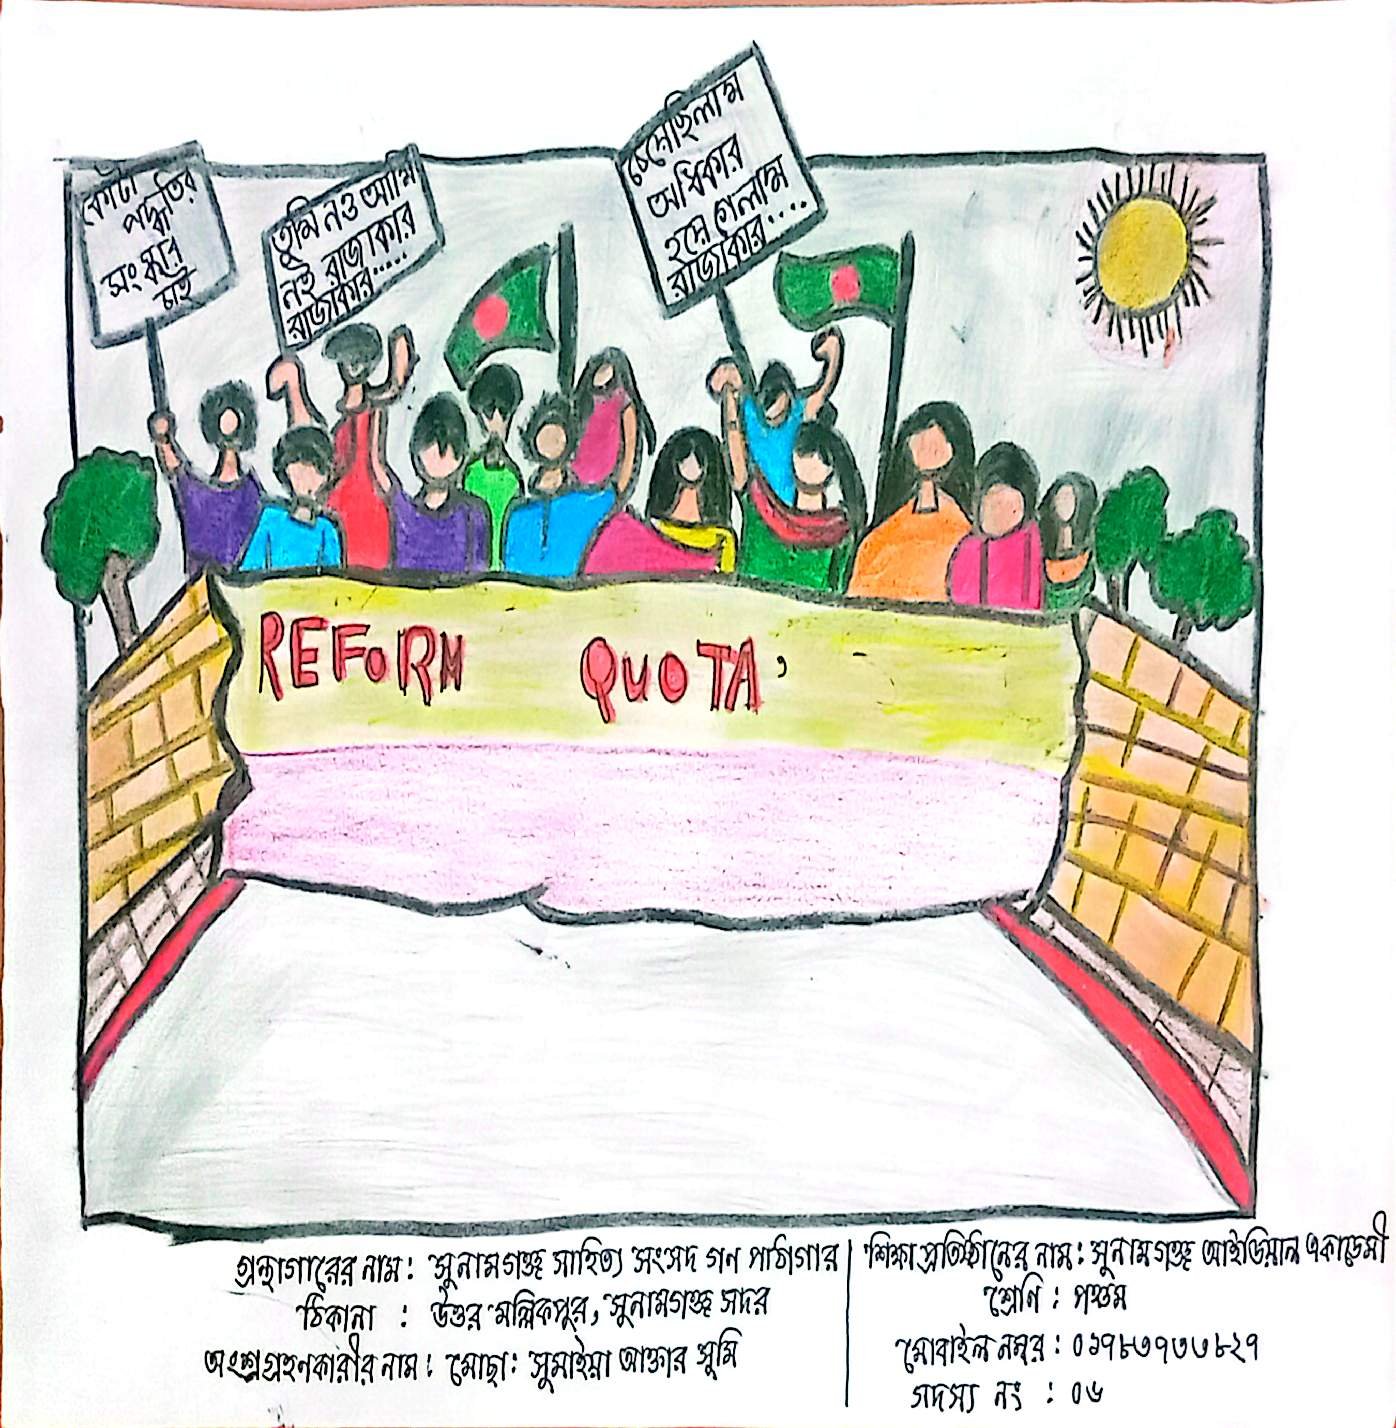 কোটা
পদ্ধতির
সংস্কার
চাই
তুমি নও আমি
নই রাজাকার
রাজাকার.....
চেয়েছিলাম
অধিকার
হয়ে গেলাম
রাজাকার....
REFORM QUOTA,
গ্রন্থাগারের নাম: সুনামগঞ্জ সাহিত্য সংসদ গণ পাঠাগার
ঠিকানা : উত্তর মল্লিকপুর, সুনামগঞ্জ সদর
অংশগ্রহনকারীর নাম: মোছা: সুমাইয়া আক্তার সুমি
শিক্ষা প্রতিষ্ঠানের নাম: সুনামগঞ্জ আইডিয়াল একাডেমী
শ্রেণি : পঞ্চম
মোবাইল নম্বর : ০১৭৮৩৭৩৩৮২৭
সদস্য নং : ০৬